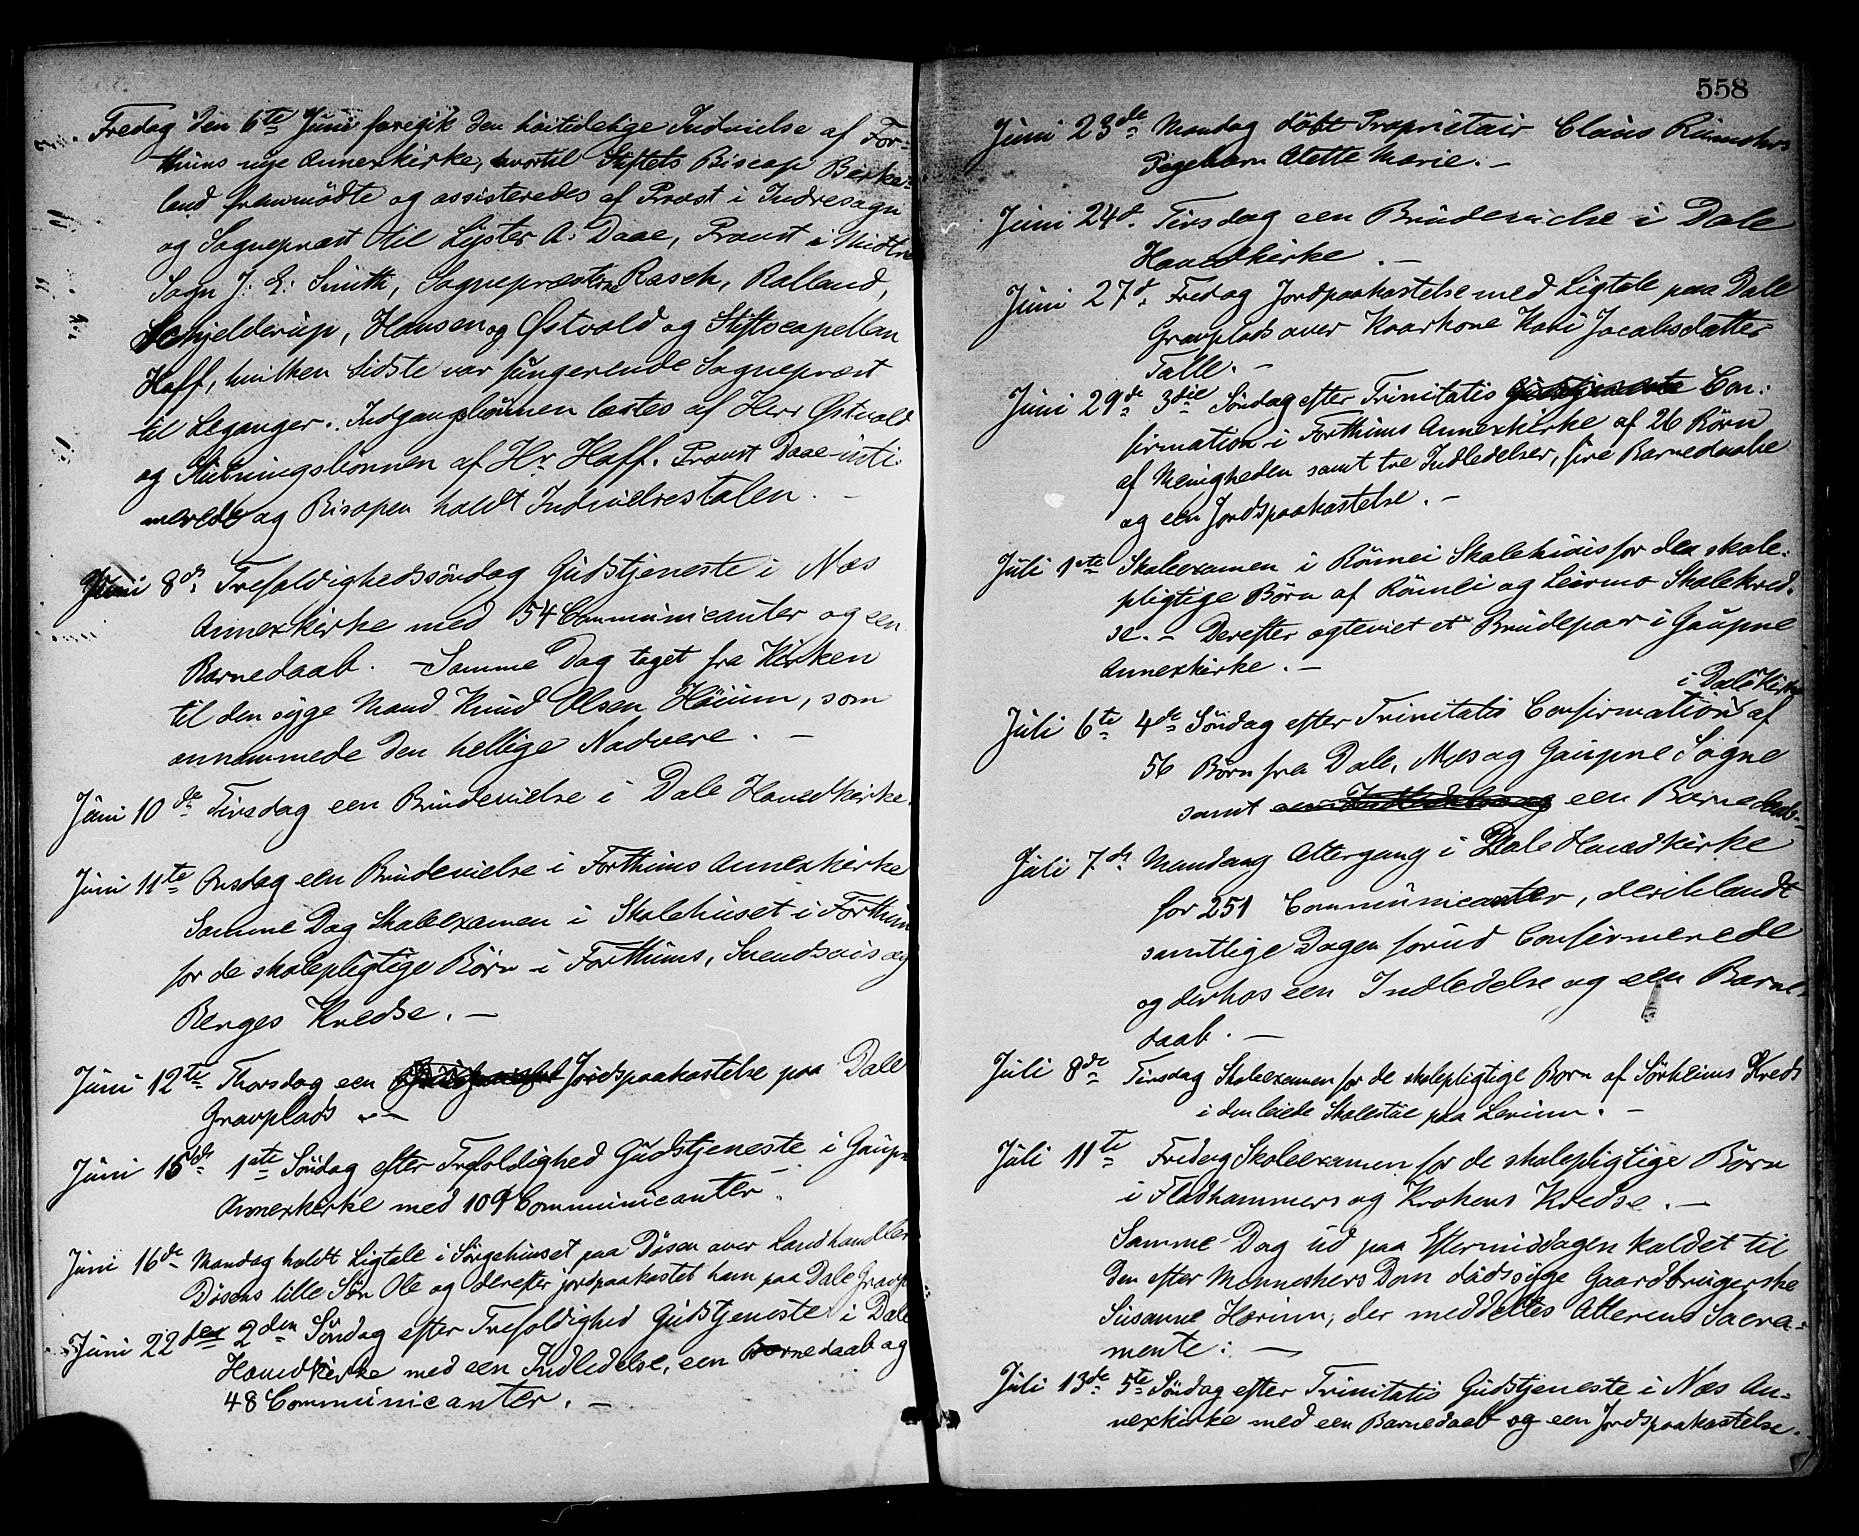 Fredag den 6te Juni foregik den høitidelige Indvielse af For-
thuns nye Annexkirke, hvortil Stiftets Biscop Birke-
land fremmødte og assisteredes af Provst i Indresogn
og Sognepræst til Lyster A. Daae, Provst i Midtre
Sogn J. E. Smith, Sognepræsterne Rasch, Balland,
Schjelderup, Hansen og Østvold og Stiftscapellan
Hoff, hvilken sidste var fungerende Sognepræst
til Leganger. Indgangsbønnen læstes af Herr Østvold
og Slutningsbønnen af Hr. Hoff. Provst Daae inti-
merede og Bispen holdt Indvielsestalen. —
Juni 8de Trefoldighedssøndag Gudstjeneste i Næs
Annexkirke med 54 Communicanter og een
Barnedaab. — Samme Dag taget fra Kirken
til den syge Mand Knud Olsen Høium, som
annammede den hellige Nadvere. —
Juni 10de Tirsdag een Brudevielse i Dale Hovedkirke.
Juni 11te Onsdag een Brudevielse i Forthuns Annexkirke
Samme Dag Skoleexamen i Skolehuset i Forthun
for de skolepligtige Børn i Forthuns, Svendsøis og
Berges Kredse. —
Juni 12te Thorsdag een Jordspaakastelse paa Dale
Gravplads. —
Juni 15de 1ste Søndag efter Trefoldighed Gudstjeneste i Gaupne
Annexkirke med 109 Communicanter.
Juni 16de Mandag holdt Ligtale i Sørgehuset paa Døsen over Landhandler
Døsens lille Søn Ole og derefter jordpaakastet ham paa Dale Gravpl
Juni 22den 2den Søndag efter Trefoldighed Gudstjeneste i Dale
Hovedkirke med een Indledelse, een Barnedaab og
48 Communicanter. —
558
Juni 23de Mandag døbt Proprietair Claus Rumohrs
Pigebarn Alette Marie. —
Juni 24de Tirsdag een Brudevielse i Dale
Hovedkirke. —
Juni 27de Fredag Jordpaakastelse med Ligtale paa Dale
Gravplads over Kaarkone Kari Jacobsdatter
Talle. —
Juni 29de 3die Søndag efter Trinitatis Gudstjeneste Con-
firmation i Forthuns Annexkirke af 26 Børn
af Menigheden samt tre Indledelser, fire Barnedaabe
og een Jordspaakastelse. —
Juli 1ste Skoleexamen i Skolehuis for de skole-
pligtige Børn af og Leirmo Skolekred-
se. — Derefter egteviet et Brudepar i Gaupne
Annexkirke. —
i Dale Kirke
Juli 6te 4de Søndag efter Trinitatis Confirmation af
56 Børn fra Dale, Næs og Gaupne Sogne
samt een Indledelse og een Barnedaab. —
Juli 7de Mandag Altergang i Dale Hovedkirke
for 251 Communicanter, deriblandt
samtlige Dagen forud Confirmerede
og derhos een Indledelse og een Barne-
daab. —
Juli 8de Tirsdag Skoleexamen for de skolepligtige Børn af Sørheims Kreds
i den leiede Skolestue paa . —
Juli 11te Fredag Skoleexamen for de skolepligtige Børn
i Flahammers og Krokens Kredse. —
Samme Dag ud paa Eftermiddagen kaldet til
den efter Menneskers Dom dødssyge Gaardbrugerske
Susanne Hærium, der meddeltes Alterens Sacra-
mente: —
Juli 13de 5te Søndag efter Trinitatis Gudstjeneste i Næs An-
nexkirke med een Barnedaab og een Jordspaakastelse.